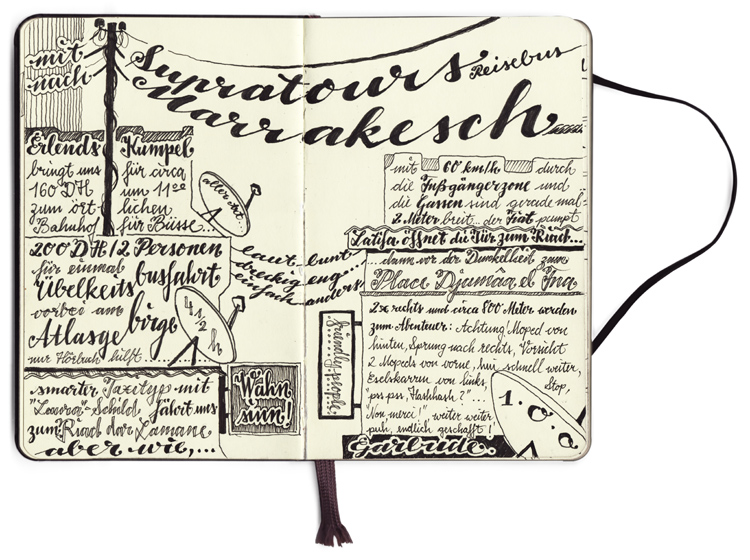 mit
nach
Supratours Reisebus
Marrakesch
Erlends Kumpel
bringt uns für circa
160 DH um 11⁰⁰
zum örtlichen
Bahnhof für Büsse...
aller Art
200 DH/2 Personen
für einmal busfahrt
Übelkeits
vorbei am
Atlasgebirge
nur Hörbuch hilft...
4 1/2 h
smarter Taxityp mit
"Laura"-Schild, fährt uns
zum Riad dar Lamane
aber wie,...
Wahnsinn!
laut, bunt
dreckig, eng...
einfach anders!
mit 60 km/h durch
die Fußgängerzone und
die Gassen sind gerade mal
2 Meter breit... der Fiat pumpt
Latifa öffnet die Tür zum Riad...
...dann vor der Dunkelheit zum
Place Djumâa el Fna
2x rechts und circa 800 Meter werden
zum Abenteuer: Achtung! Moped von
hinten, Sprung nach rechts, Vorsicht
2 Mopeds von vorne, hui schnell weiter,
Eselskarren von links, Stop,
"pss pss, Hashhash?"...
"Non, merci!" weiter weiter
puh, endlich geschafft!
friendly people!
1.0.a
Gertrude.